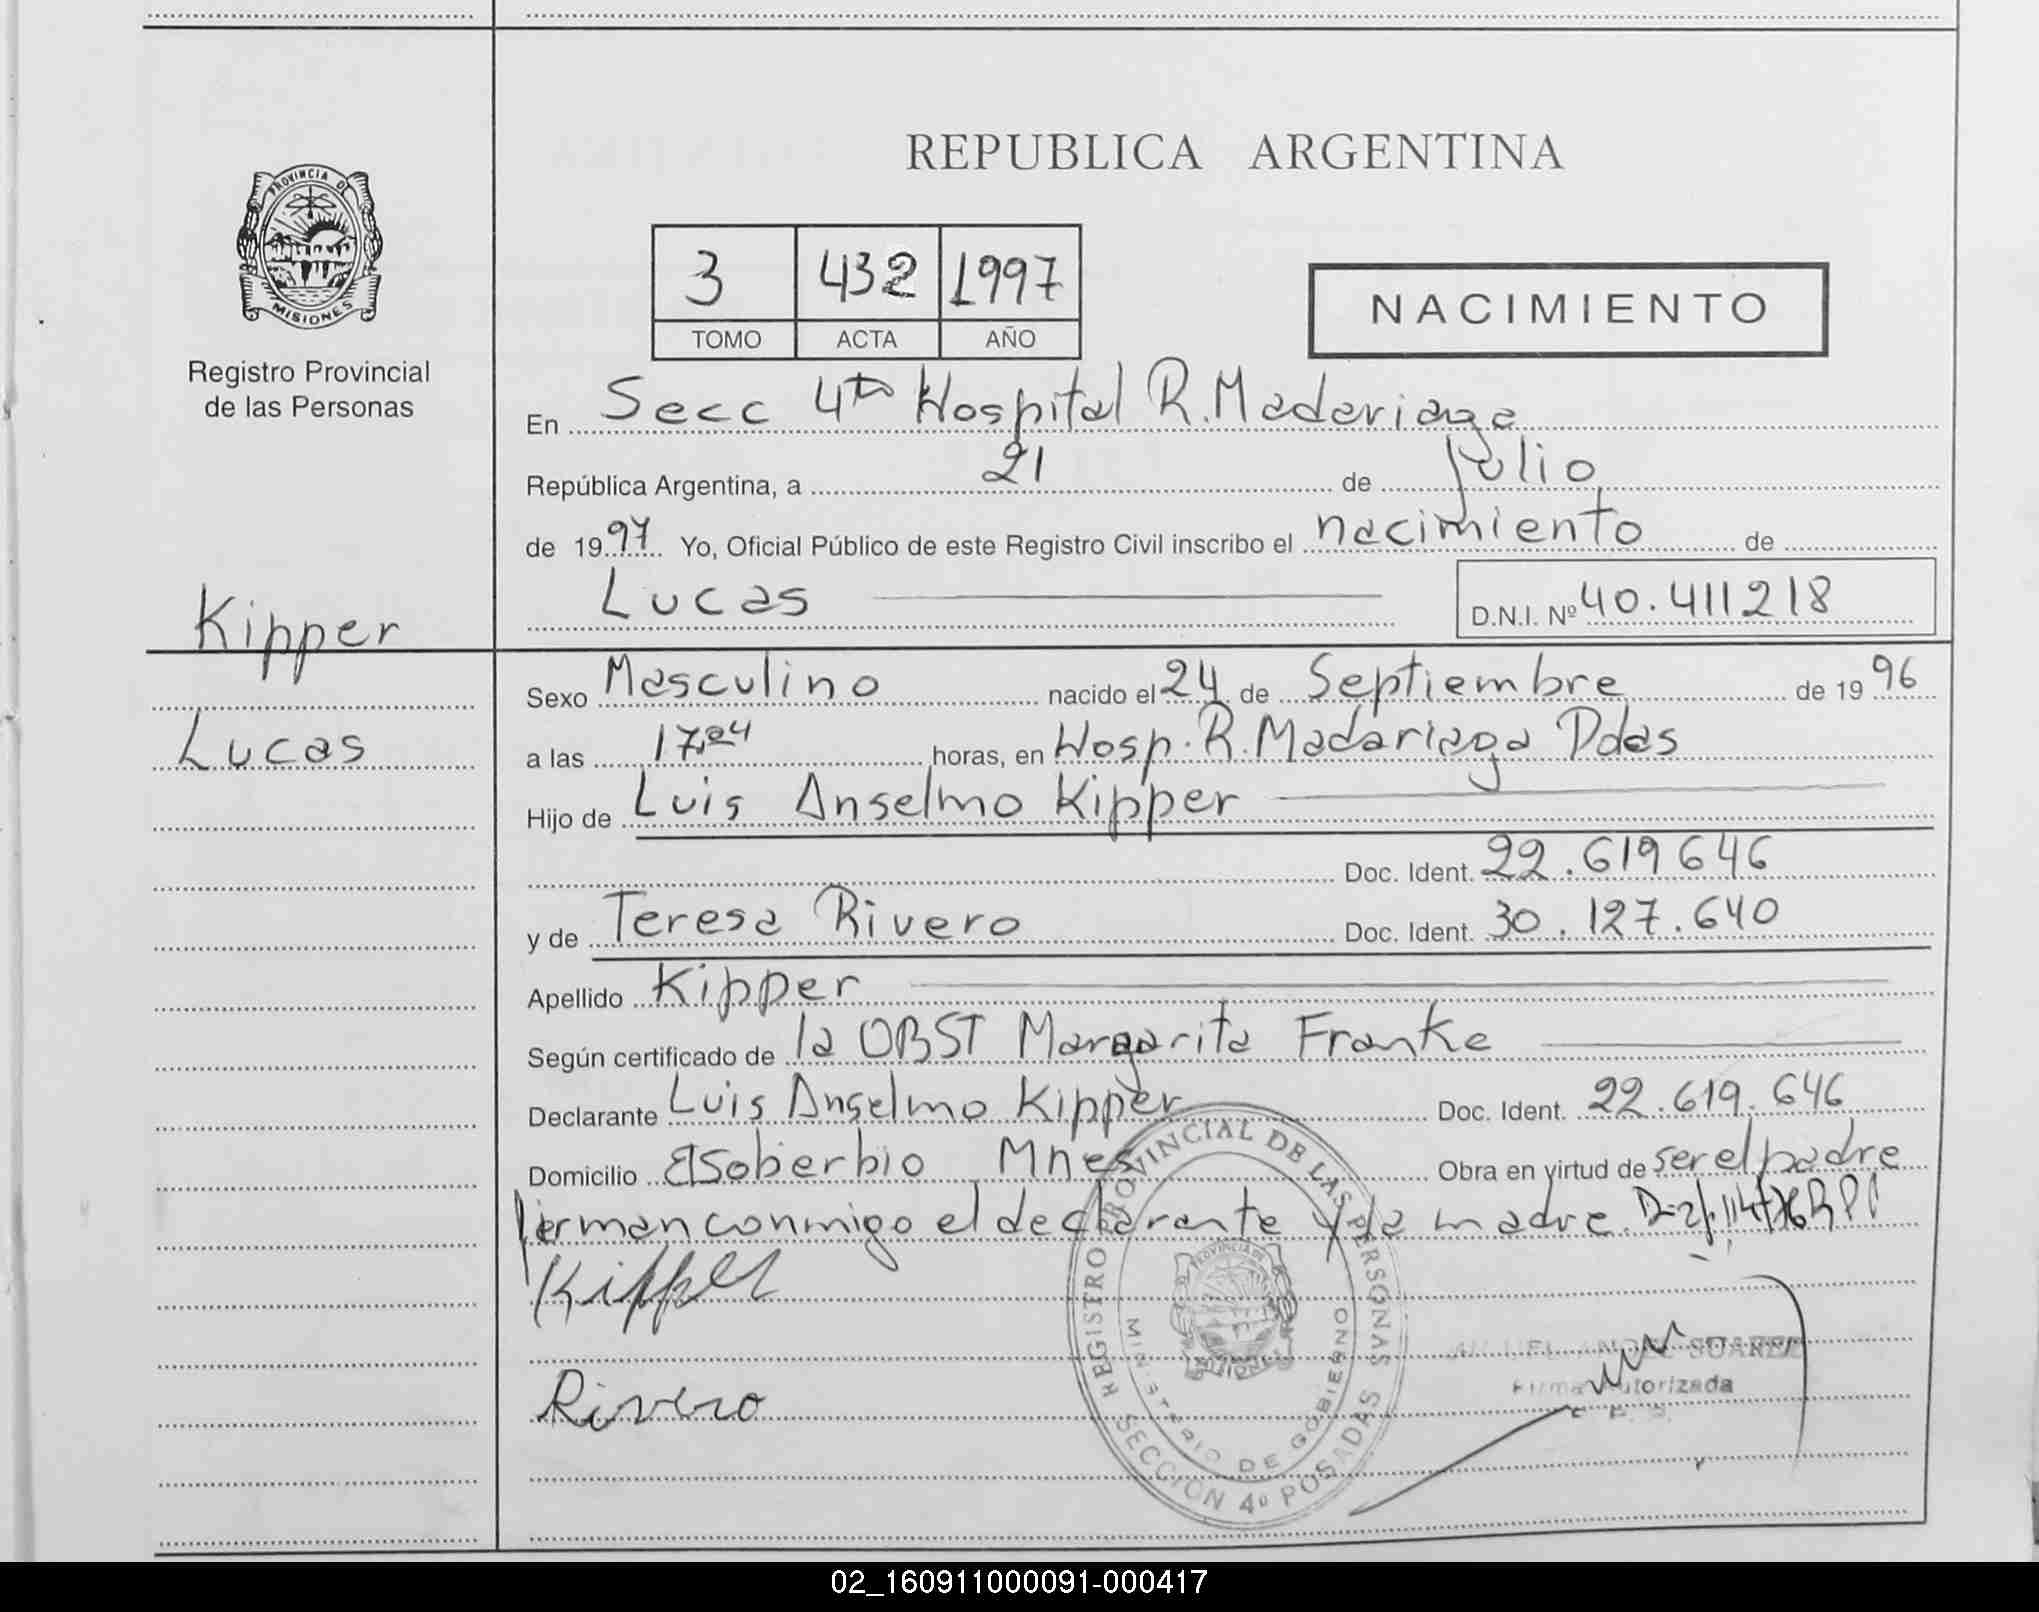 REPUBLICA ARGENTINA
PROVINCIA DE
MISIONES
Registro Provincial
de las Personas
3 432 1997
TOMO ACTA AÑO
NACIMIENTO
En Secc 4ta Hospital R. Madariaga
República Argentina, a 21 de Julio
de 1997 Yo, Oficial Público de este Registro Civil inscribo el nacimiento de
Lucas D.N.I. Nº 40.411218
Kipper
Lucas
Sexo Masculino nacido el 24 de Septiembre de 1996
a las 17,24 horas, en Hosp. R. Madariaga Pdas
Hijo de Luis Anselmo Kipper
Doc. Ident. 22.619646
y de Teresa Rivero Doc. Ident. 30.127.640
Apellido Kipper
Según certificado de la OBST Margarita Franke
Declarante Luis Anselmo Kipper Doc. Ident. 22.619.646
Domicilio ElSoberbio Mnes Obra en virtud de ser el padre
Firman conmigo el declarante y la madre.
Kipper
Rivero
REGISTRO PROVINCIAL DE LAS PERSONAS
SECCION 4º POSADAS
MINISTERIO DE GOBIERNO
PROVINCIA DE
MISIONES
SUAREZ
Firma Autorizada
02_160911000091-000417